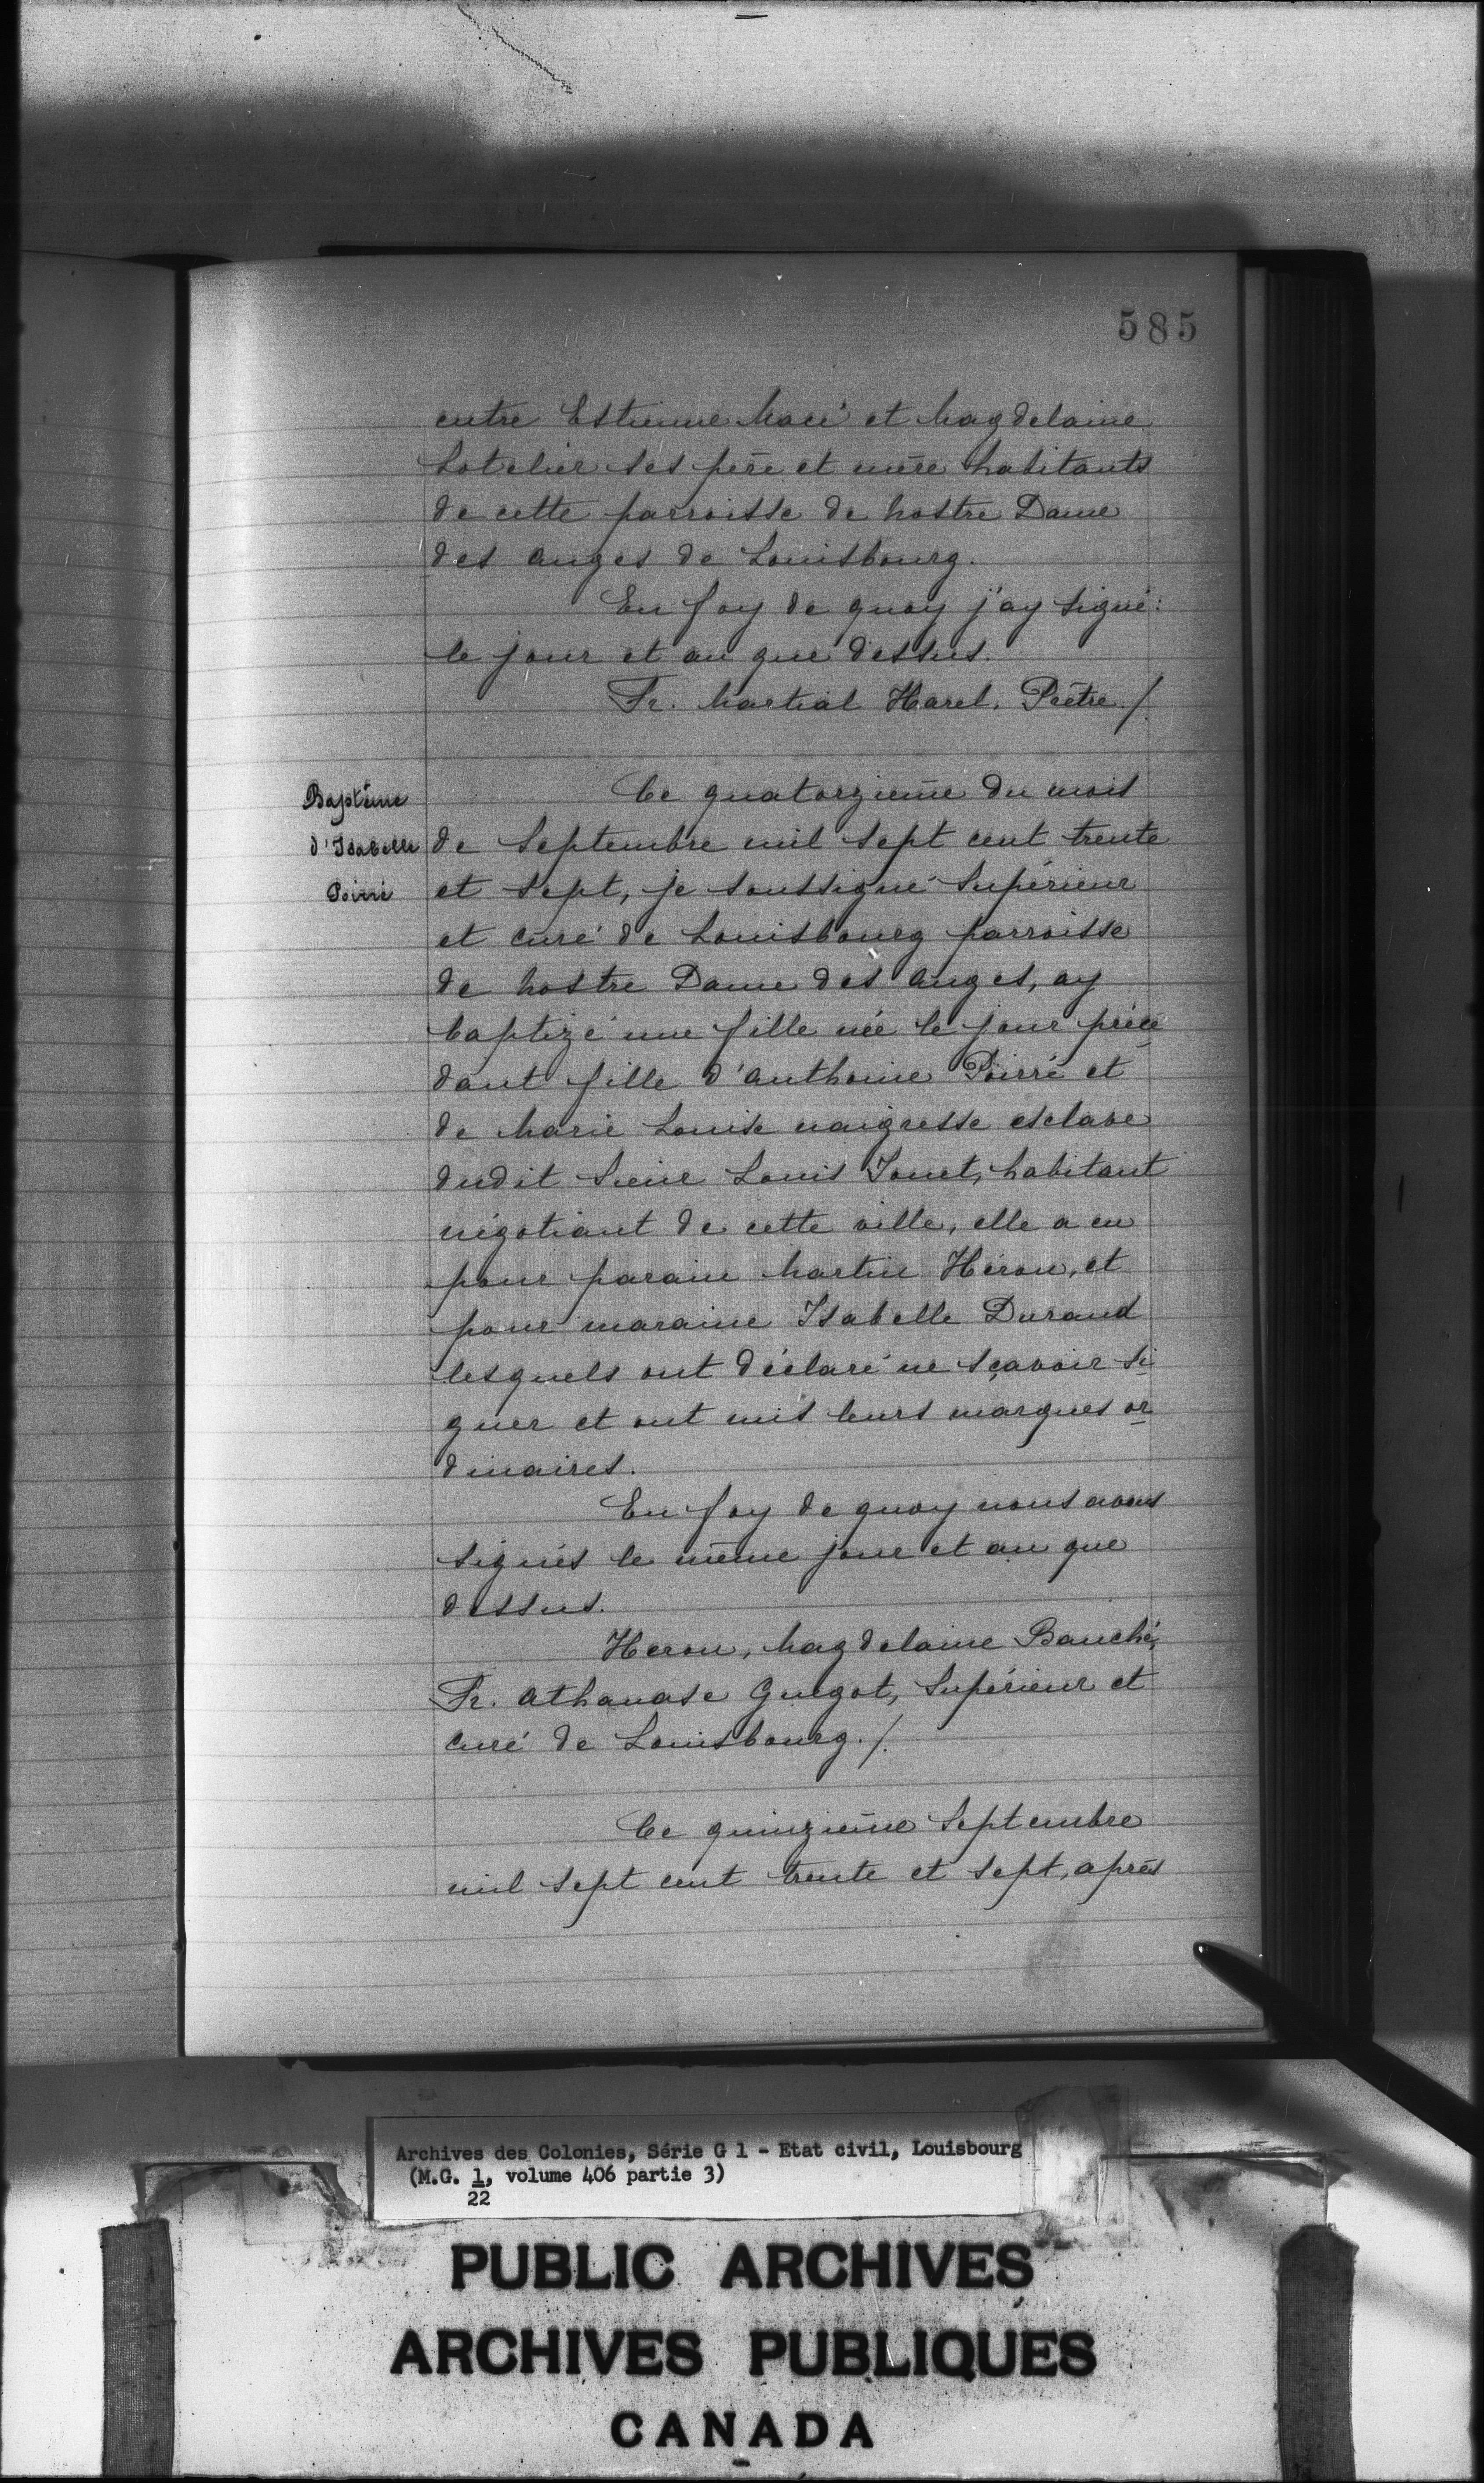 585
entre Estienne Macé et Magdelaine
Lotelier ses père et mère habitants
de cette parroisse de Nostre Dame
des Anges de Louisbourg.
En foy de quoy j'ay signé:
le jour et an que dessus.
Fr. Martial Harel, Prêtre./.
Baptême
d'Isabelle
Poirré
Ce quatorzième du mois
de Septembre mil sept cent trente
et sept, je soussigné Supérieur
et curé de Louisbourg parroisse
de Nostre Dame des Anges, ay
baptizé une fille née le jour précé
dant fille d'Anthoine Poirré et
de Marie Louise naigresse esclave
dudit Sieur Louis Jouet, habitant
négotiant de cette ville, elle a eu
pour parain Martin Héron, et
pour maraine Isabelle Durand
lesquels ont déclaré ne sçavoir si
gner et ont mis leurs marques or
dinaires.
En foy de quoy nous avons
signés le même jour et an que
dessus.
Heron, Magdelaine Bauché,
Fr. Athanase Guégot, Supérieur et
curé de Louisbourg./.
Ce quinzième Septembre
mil sept cent trente et sept, après
Archives des Colonies, Série G 1 - Etat civil, Louisbourg
(M.G. 1, volume 406 partie 3)
22
PUBLIC ARCHIVES
ARCHIVES PUBLIQUES
CANADA